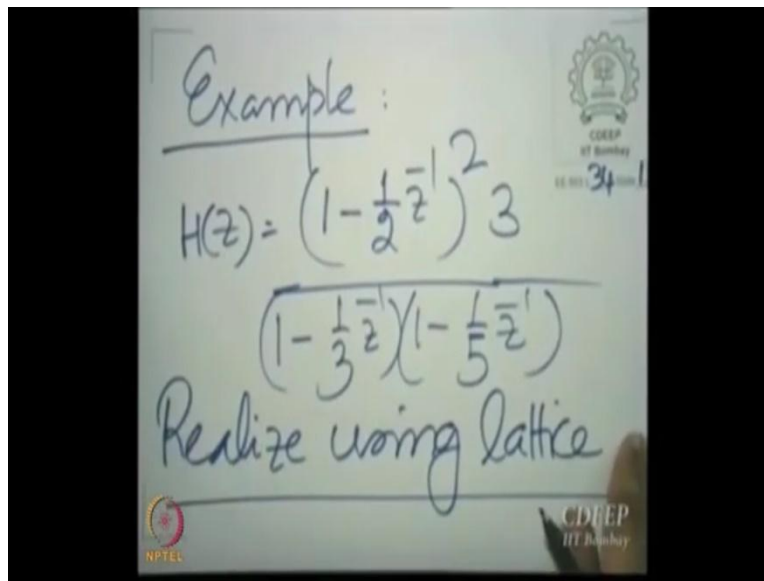 Example :
CDEEP
IIT Bombay
34
H(z) = (1 - 1/2 z⁻¹)² 3
(1 - 1/3 z⁻¹)(1 - 1/5 z⁻¹)
Realize using lattice
NPTEL
CDEEP
IIT Bombay